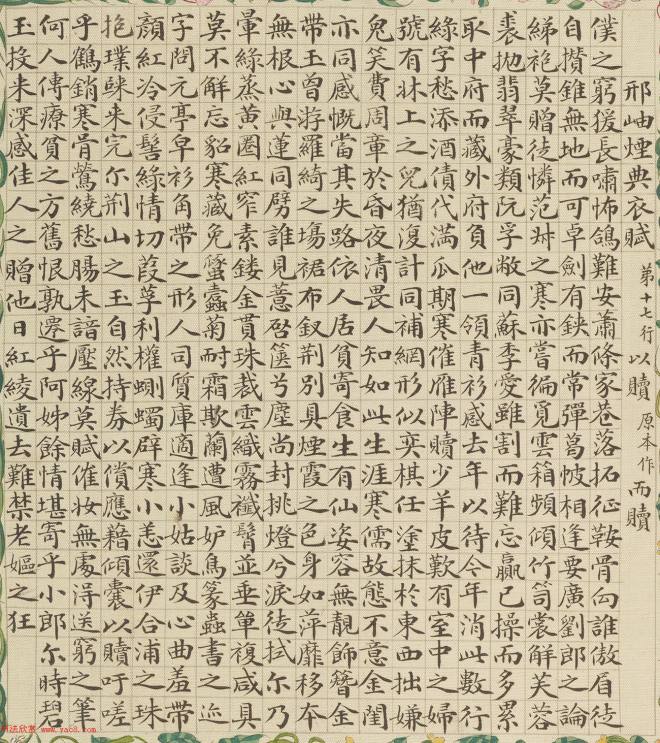 邢岫煙典衣賦 第十七行 以贖 原本作 而贖
僕之窮猨長嘯怖鴿難安蕭條家巷落拓征鞍骨匃誰傲眉徒
自攢錐無地而可卓劍有鋏而常彈葛帔相逢要廣劉郎之論
綈袍莫贈徒憐范叔之寒亦嘗徧覓雲箱頻傾竹笥裳解芙蓉
裘拋翡翠豪類阮孚敝同蘇季愛雖割而難忘贏已操而多累
取中府而藏外府負他一領青衫感去年以待今年消此數行
綠字愁添酒債代滿瓜期寒催雁陣贖少羊皮歎有室中之婦
號有牀上之兒猶復計同補網形似奕棋任塗抹於東西拙嫌
鬼笑費周章於昏夜清畏人知如此生涯寒儒故態不意金閨
亦同感慨當其失路依人居貧寄食生有仙姿容無靚飾簪金
帶玉曾游羅綺之場裙布釵荊別具煙霞之色身如萍靡移本
無根心與蓮同劈誰見薏啟篋兮塵尚封挑燈兮淚徒拭尔乃
暈綠蒸黃圈紅窄素鏤金貫珠裁雲織霧襳髾並垂單複咸具
莫不解忘貂寒藏免蠹菊耐霜欺蘭遭風妒鳥篆蟲書之迹
字問元亭皁衫角帶之形人司質庫適逢小姑談及心曲羞帶
顏紅冷侵髻綠情切葭莩利權蠋辟寒小恙還伊合浦之珠
抱璞歸來完尔荊山之玉自然持券以償應藉傾囊以贖吁嗟
乎鶴銷寒骨鶯繞愁腸未諳壓線莫賦催妝無處淂送窮之筆
何人傳療貧之方舊恨孰遷乎阿姊餘情堪寄乎小郎尔時碧
玉投來深感佳人之贈他日紅綾遺去難禁老嫗之狂
书法欣赏 www.yac8.com